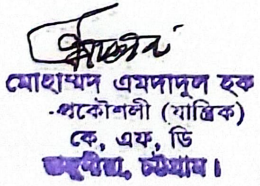 মোহাম্মদ এমদাদুল হক
প্রকৌশলী (যান্ত্রিক)
কে, এফ, ডি
চট্টগ্রাম।